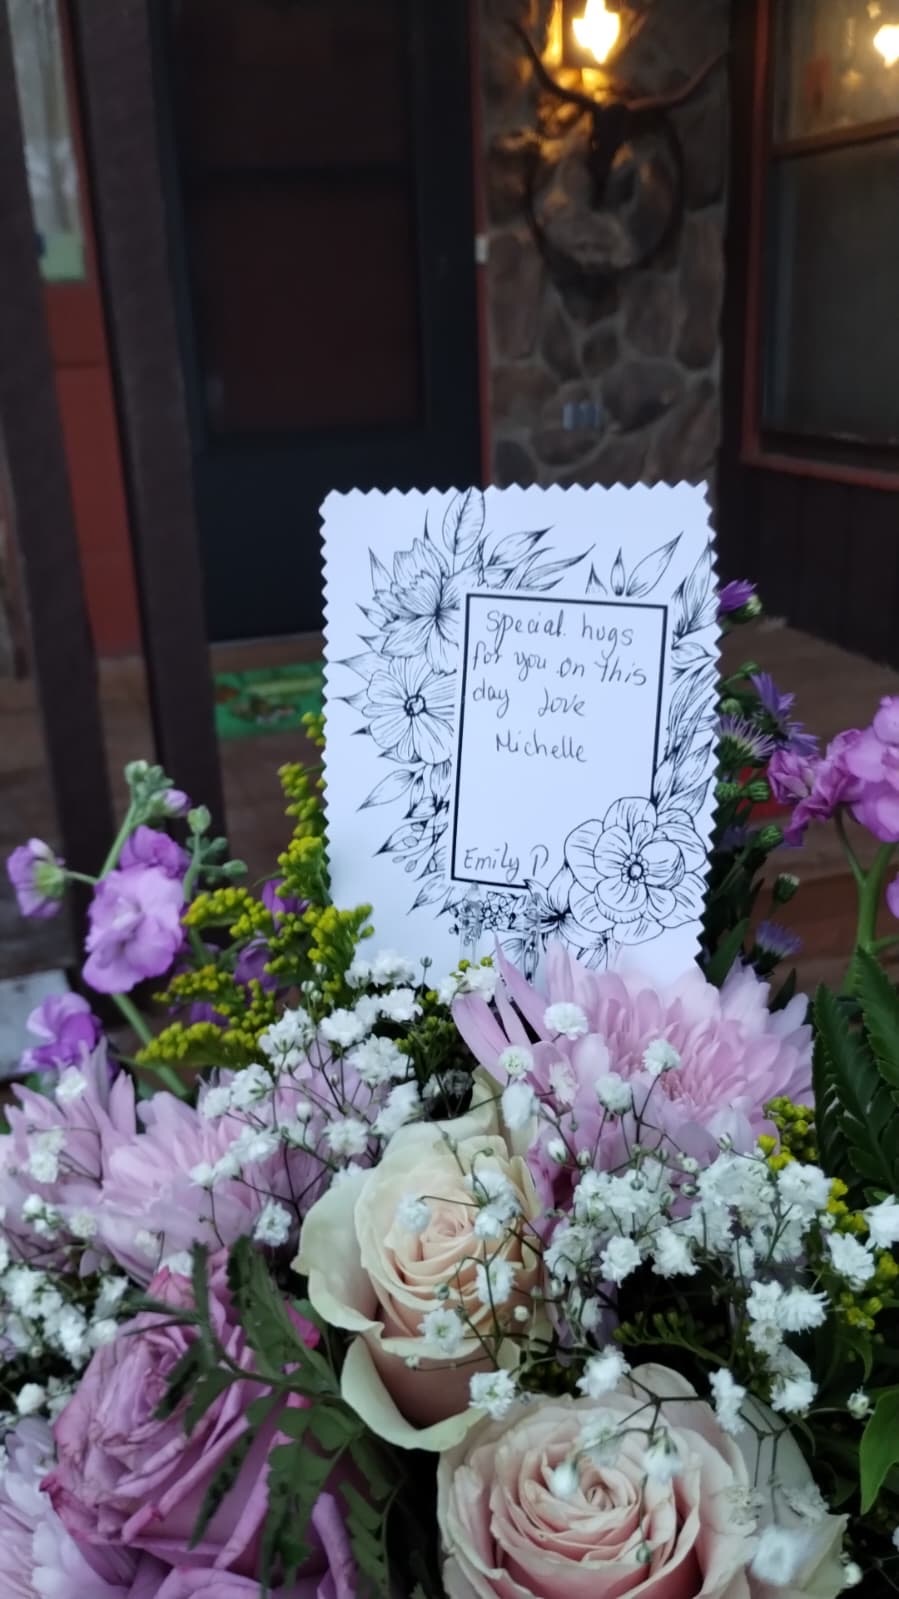 Special hugs
for you on this
day love
Michelle
Emily P